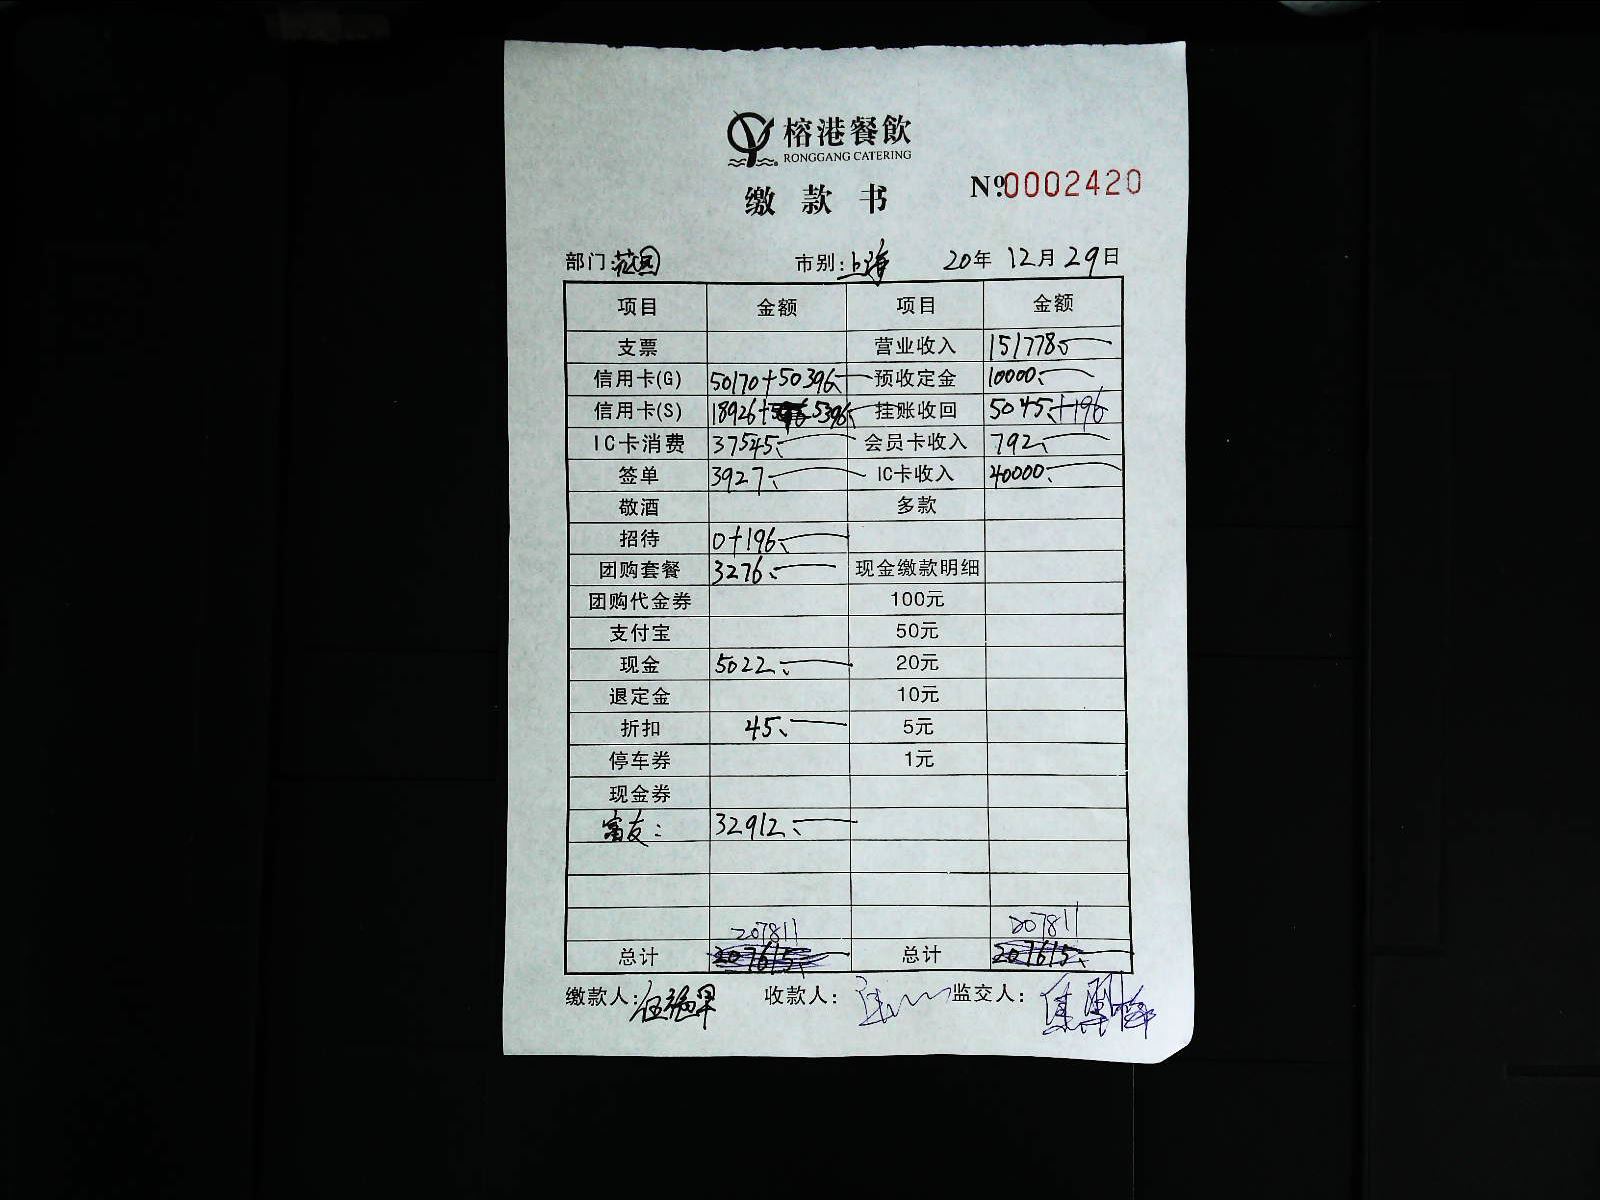 榕港餐飲
RONGGANG CATERING
缴款书 №0002420
部门: 范园 市别:上海 20年12月29日
项目 金额 项目 金额
支票 营业收入 151778
信用卡(G) 50170+50396 预收定金 10000
信用卡(S) 18926+5396 挂账收回 5045+196
IC卡消费 37545 会员卡收入 792
签单 3927 IC卡收入 40000
敬酒 多款
招待 0+196
团购套餐 3276 现金缴款明细
团购代金券 100元
支付宝 50元
现金 5022 20元
退定金 10元
折扣 45 5元
停车券 1元
现金券
富友: 32912
207811 207811
总计 207615 总计 207615
缴款人: 收款人: 监交人: